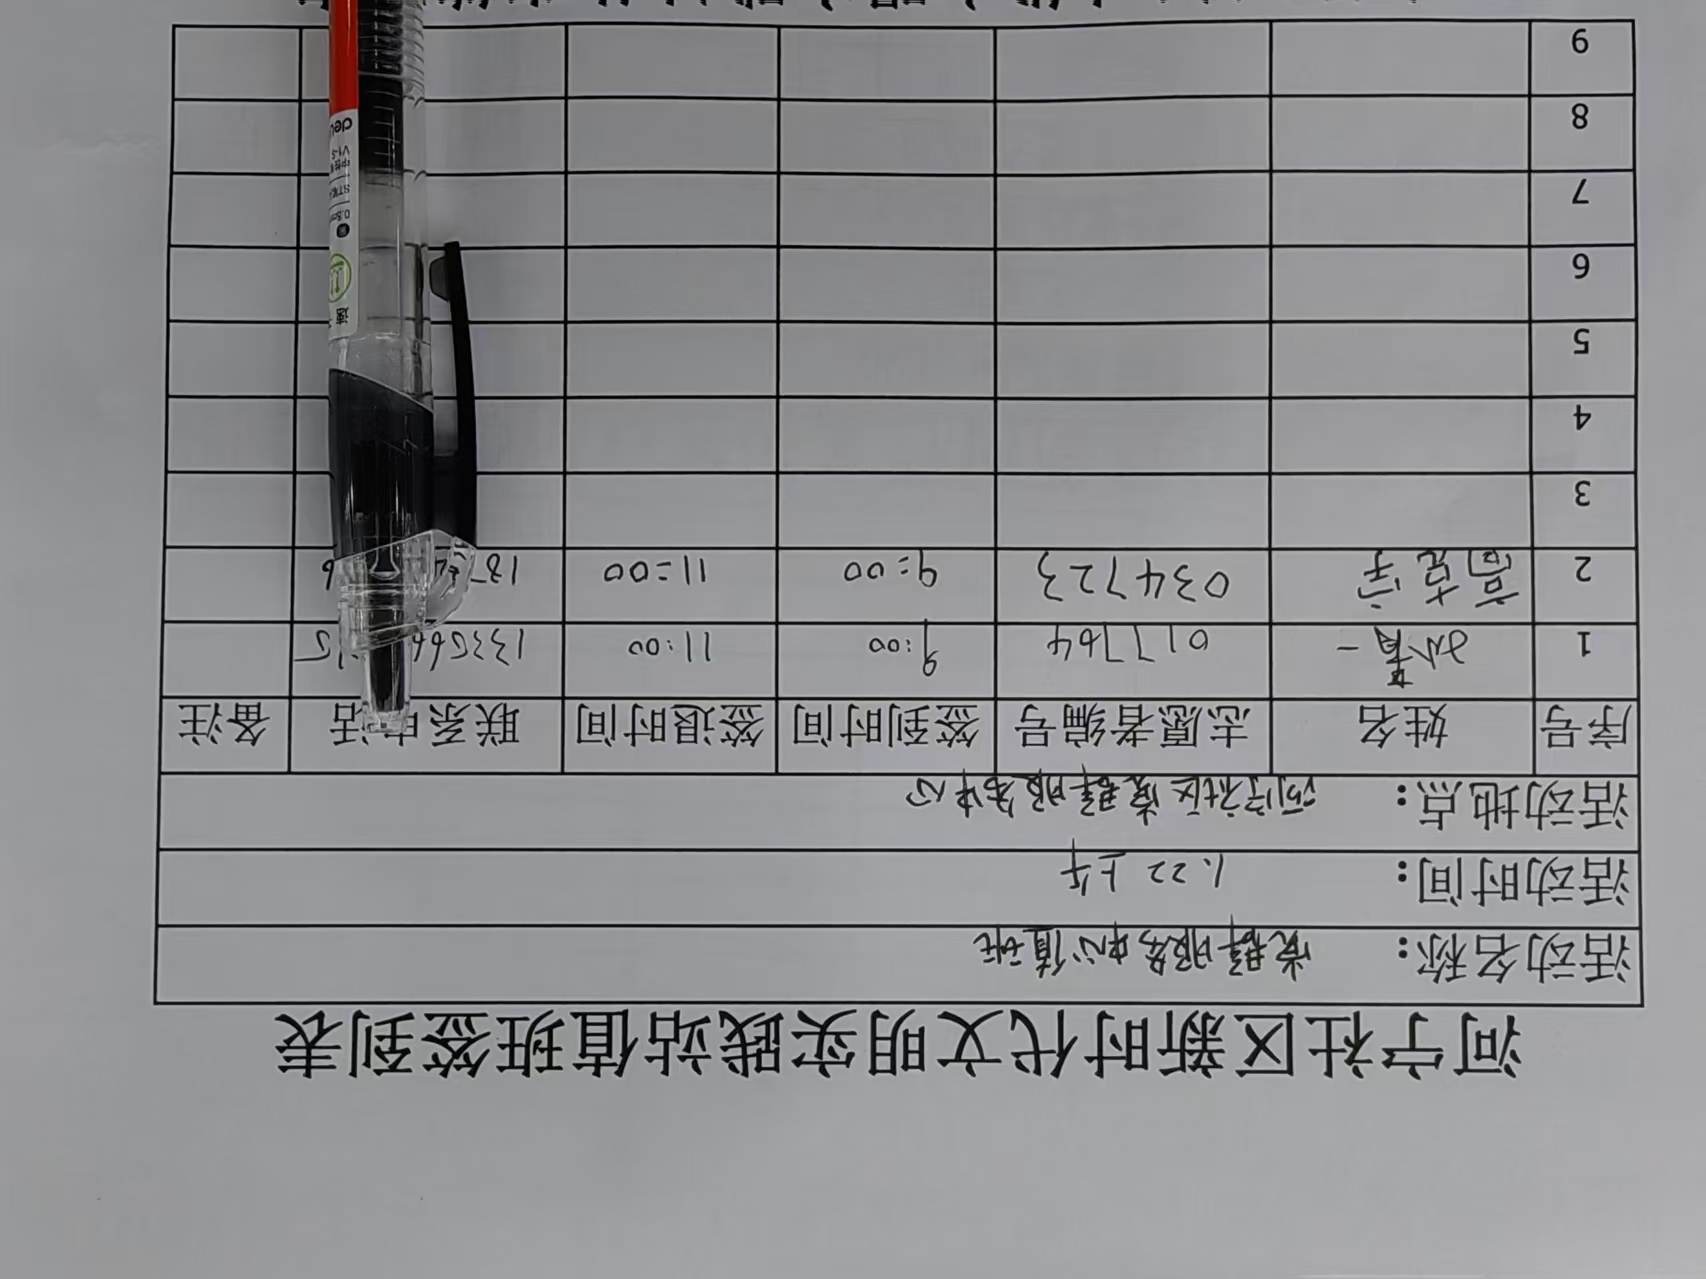 河宁社区新时代文明实践站值班签到表
活动名称： 党群服务中心值班
活动时间： 1.22 上午
活动地点： 河宁社区党群服务中心
序号 姓名 志愿者编号 签到时间 签退时间 联系电话 备注
1 017764 9:00 11:00
2 034723 9:00 11:00
3
4
5
6
7
8
9